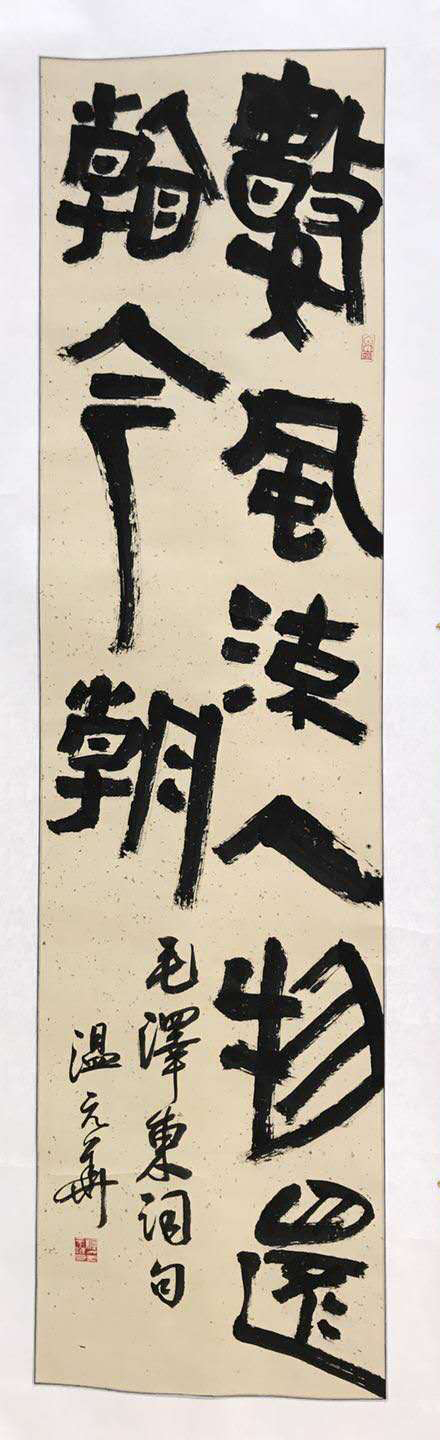 數風流人物還
看今朝
毛澤東詞句
温元華